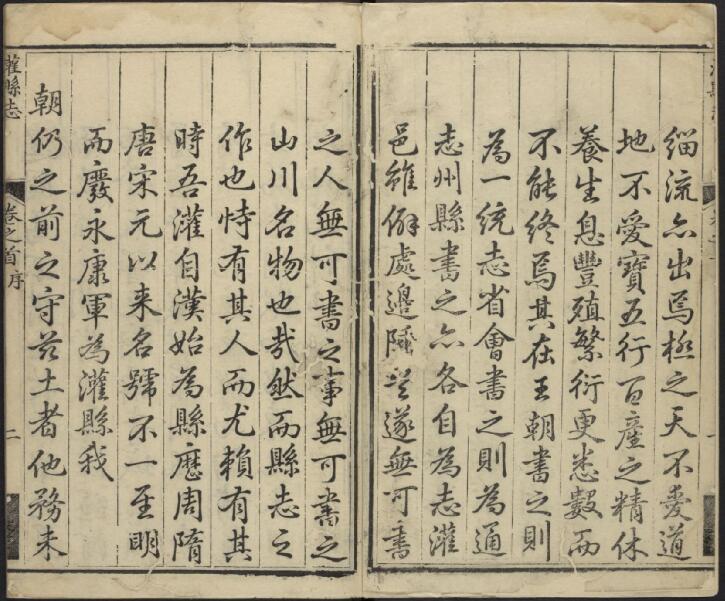 緇流亦出焉極之天不愛道
地不愛寶五行百產之精休
養生息豐殖繁衍更悉數而
不能終焉其在王朝書之則
為一統志省會書之則為通
志州縣書之亦各自為志灌
邑雖僻處邊陲豈遂無可書
之人無可書之事無可書之
山川名物也哉然而縣志之
作也恃有其人而尤賴有其
時吾灌自漢始為縣歷周隋
唐宋元以來名號不一至明
而廢永康軍為灌縣我
朝仍之前之守茲土者他務未
灌縣志
卷之首序
二